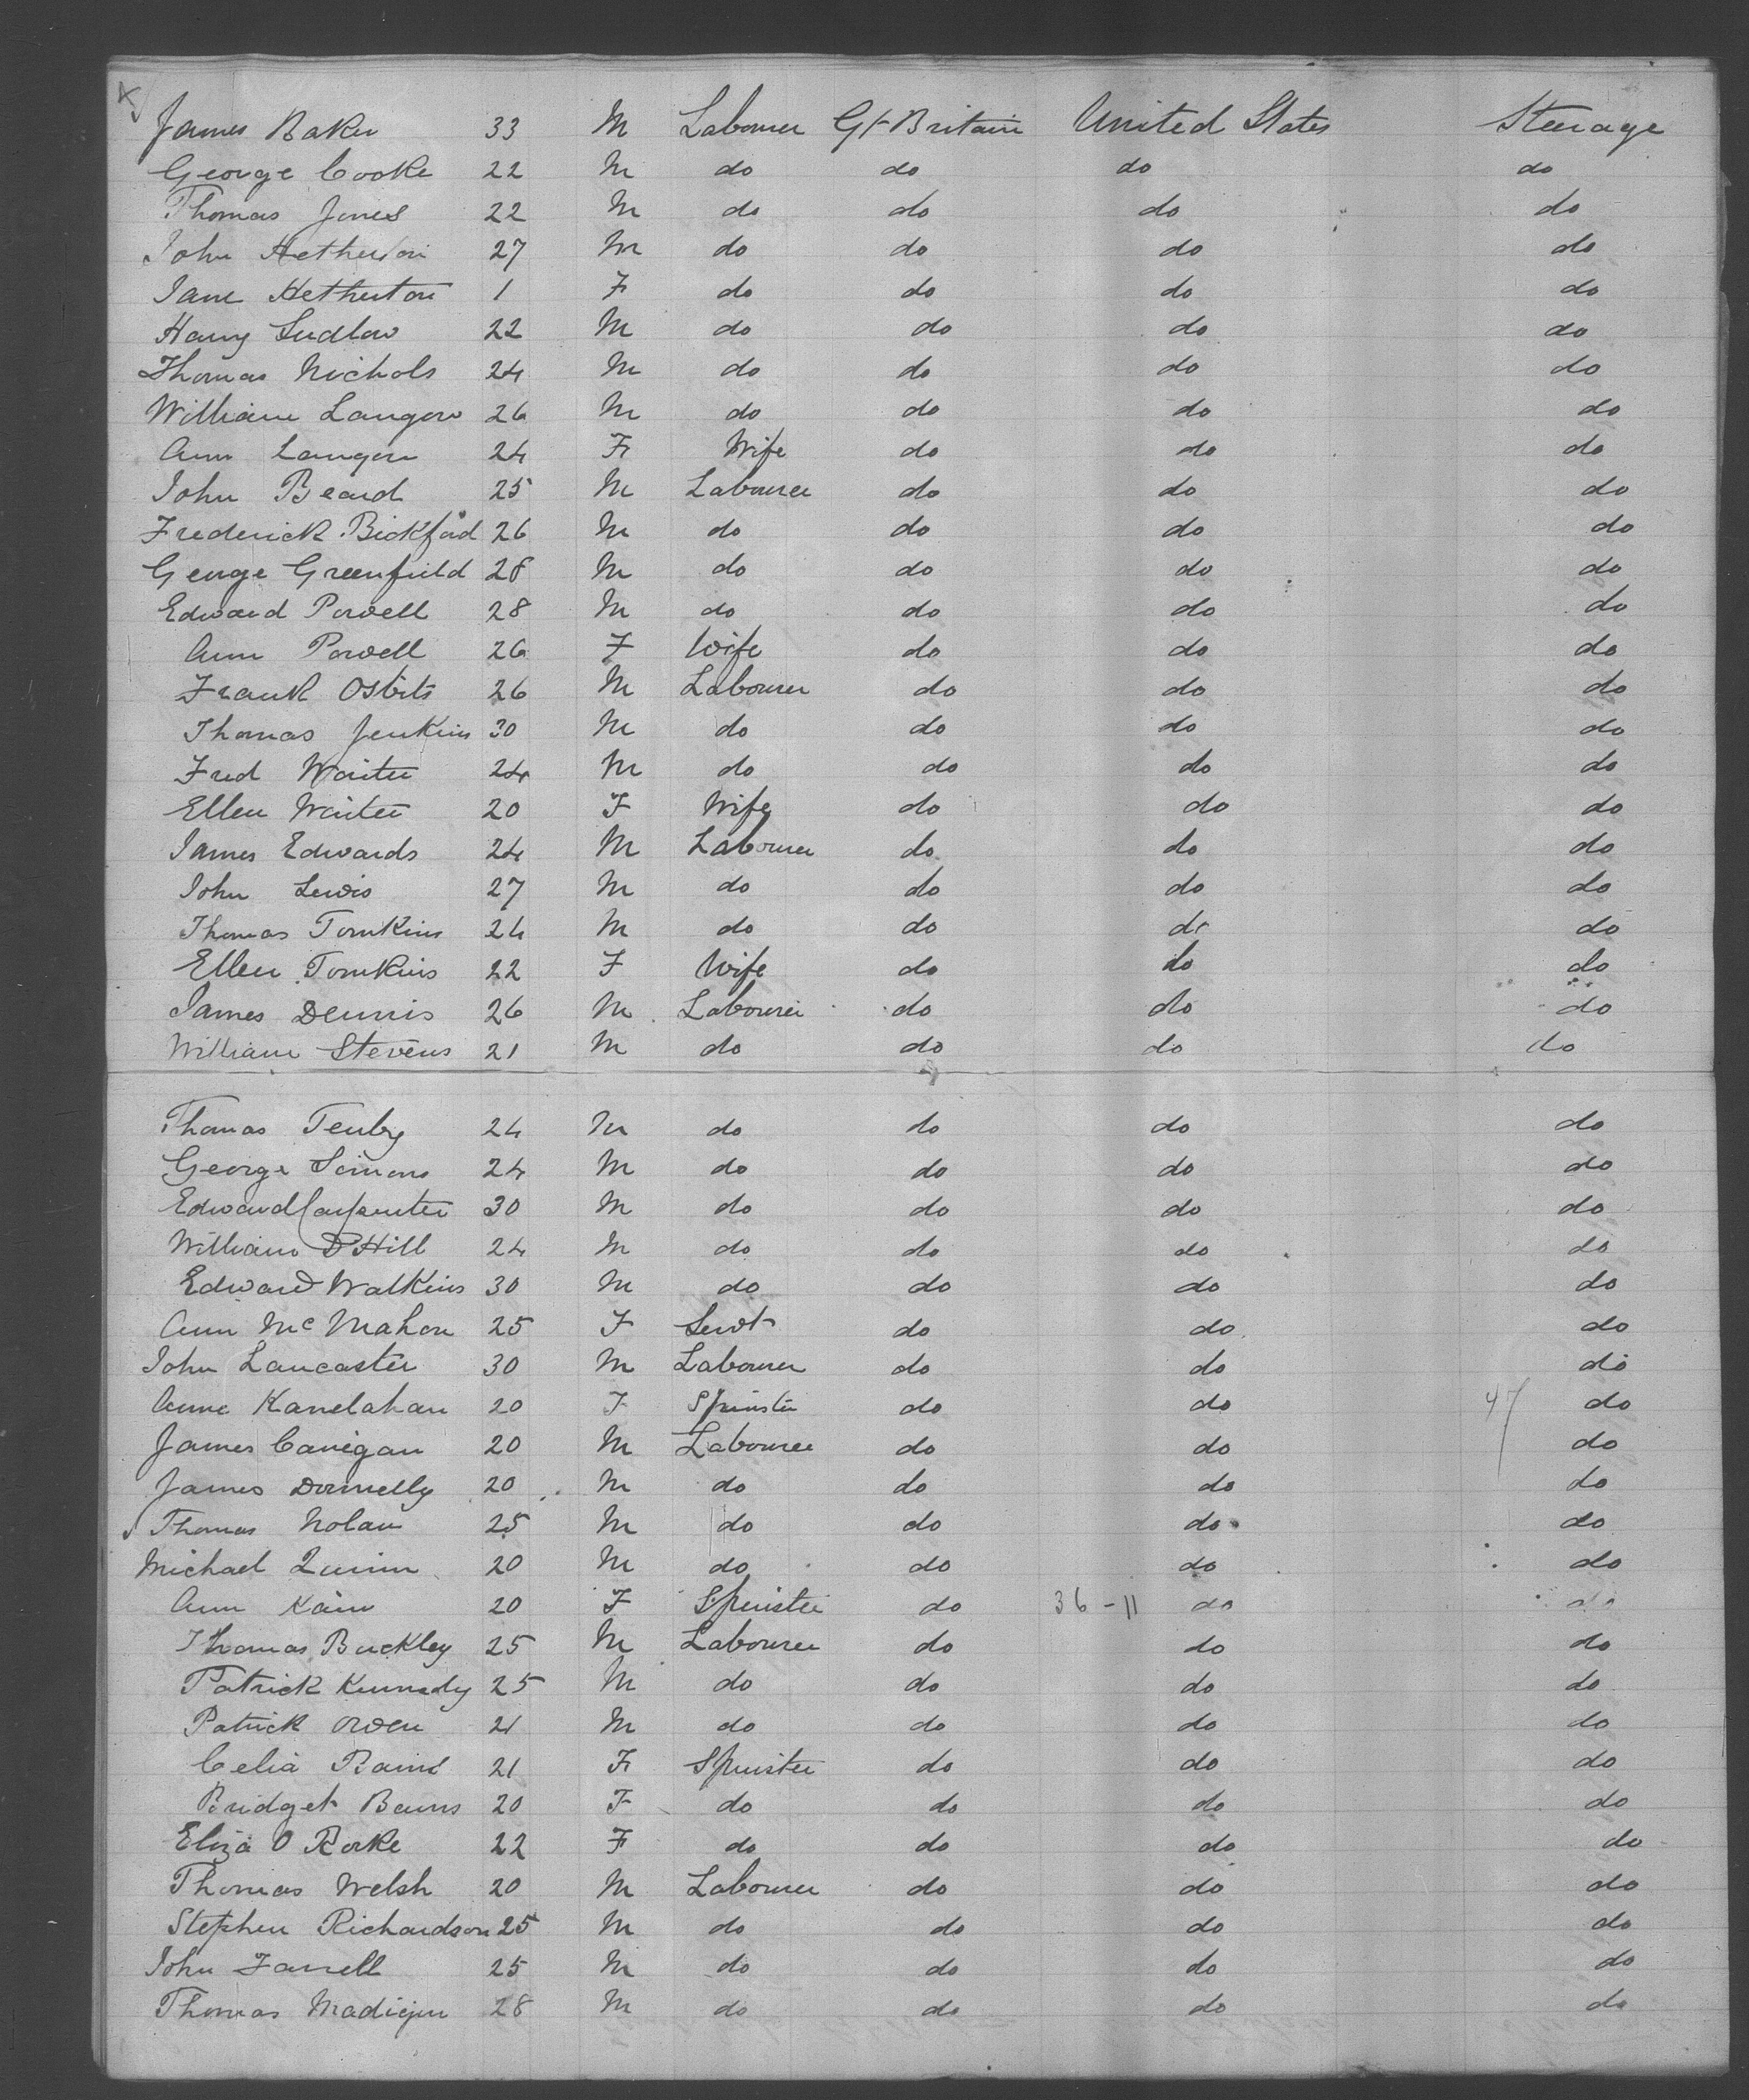 James Baker 33 M Labourer Gt Britain United States Steerage
George Cooke 22 M do do do do
Thomas Jones 22 M do do do do
John Hetherton 27 M do do do do
Jane Hetherton 1 F do do do do
Harry Ludlow 22 M do do do do
Thomas Nichols 24 M do do do do
William Langon 26 M do do do do
Ann Langon 24 F Wife do do do
John Beard 25 M Labourer do do do
Frederick Bickford 26 M do do do do
George Greenfield 28 M do do do do
Edward Powell 28 M do do do do
Ann Powell 26 F Wife do do do
Frank 26 M Labourer do do do
Thomas Jenkins 30 M do do do do
Fred Waiter 24 M do do do do
Ellen Waiter 20 F Wife do do do
James Edwards 24 M Labourer do do do
John Lewis 27 M do do do do
Thomas Tomkins 24 M do do do do
Ellen Tomkins 22 F Wife do do do
James Dennis 26 M Labourer do do do
William Stevens 21 M do do do do
Thomas Tenby 24 M do do do do
George Simons 24 M do do do do
Edward Carpenter 30 M do do do do
William P Hill 24 M do do do do
Edward Watkins 30 M do do do do
Ann McMahon 25 F Servt do do do
John Lancaster 30 M Labourer do do do
Anne Kanelahan 20 F Spinster do do 47 do
James Carrigan 20 M Labourer do do do
James Donnelly 20 M do do do do
Thomas Nolan 25 M do do do do
Michael Quinn 20 M do do do do
Ann Kain 20 F Spinster do 36-11 do do
Thomas Buckley 25 M Labourer do do do
Patrick Kennedy 25 M do do do do
Patrick Owen 21 M do do do do
Celia 21 F Spinster do do do
Bridget Bains 20 F do do do do
Eliza O Rorke 22 F do do do do
Thomas Welsh 20 M Labourer do do do
Stephen Richardson 25 M do do do do
John Farrell 25 M do do do do
Thomas Madigan 28 M do do do do